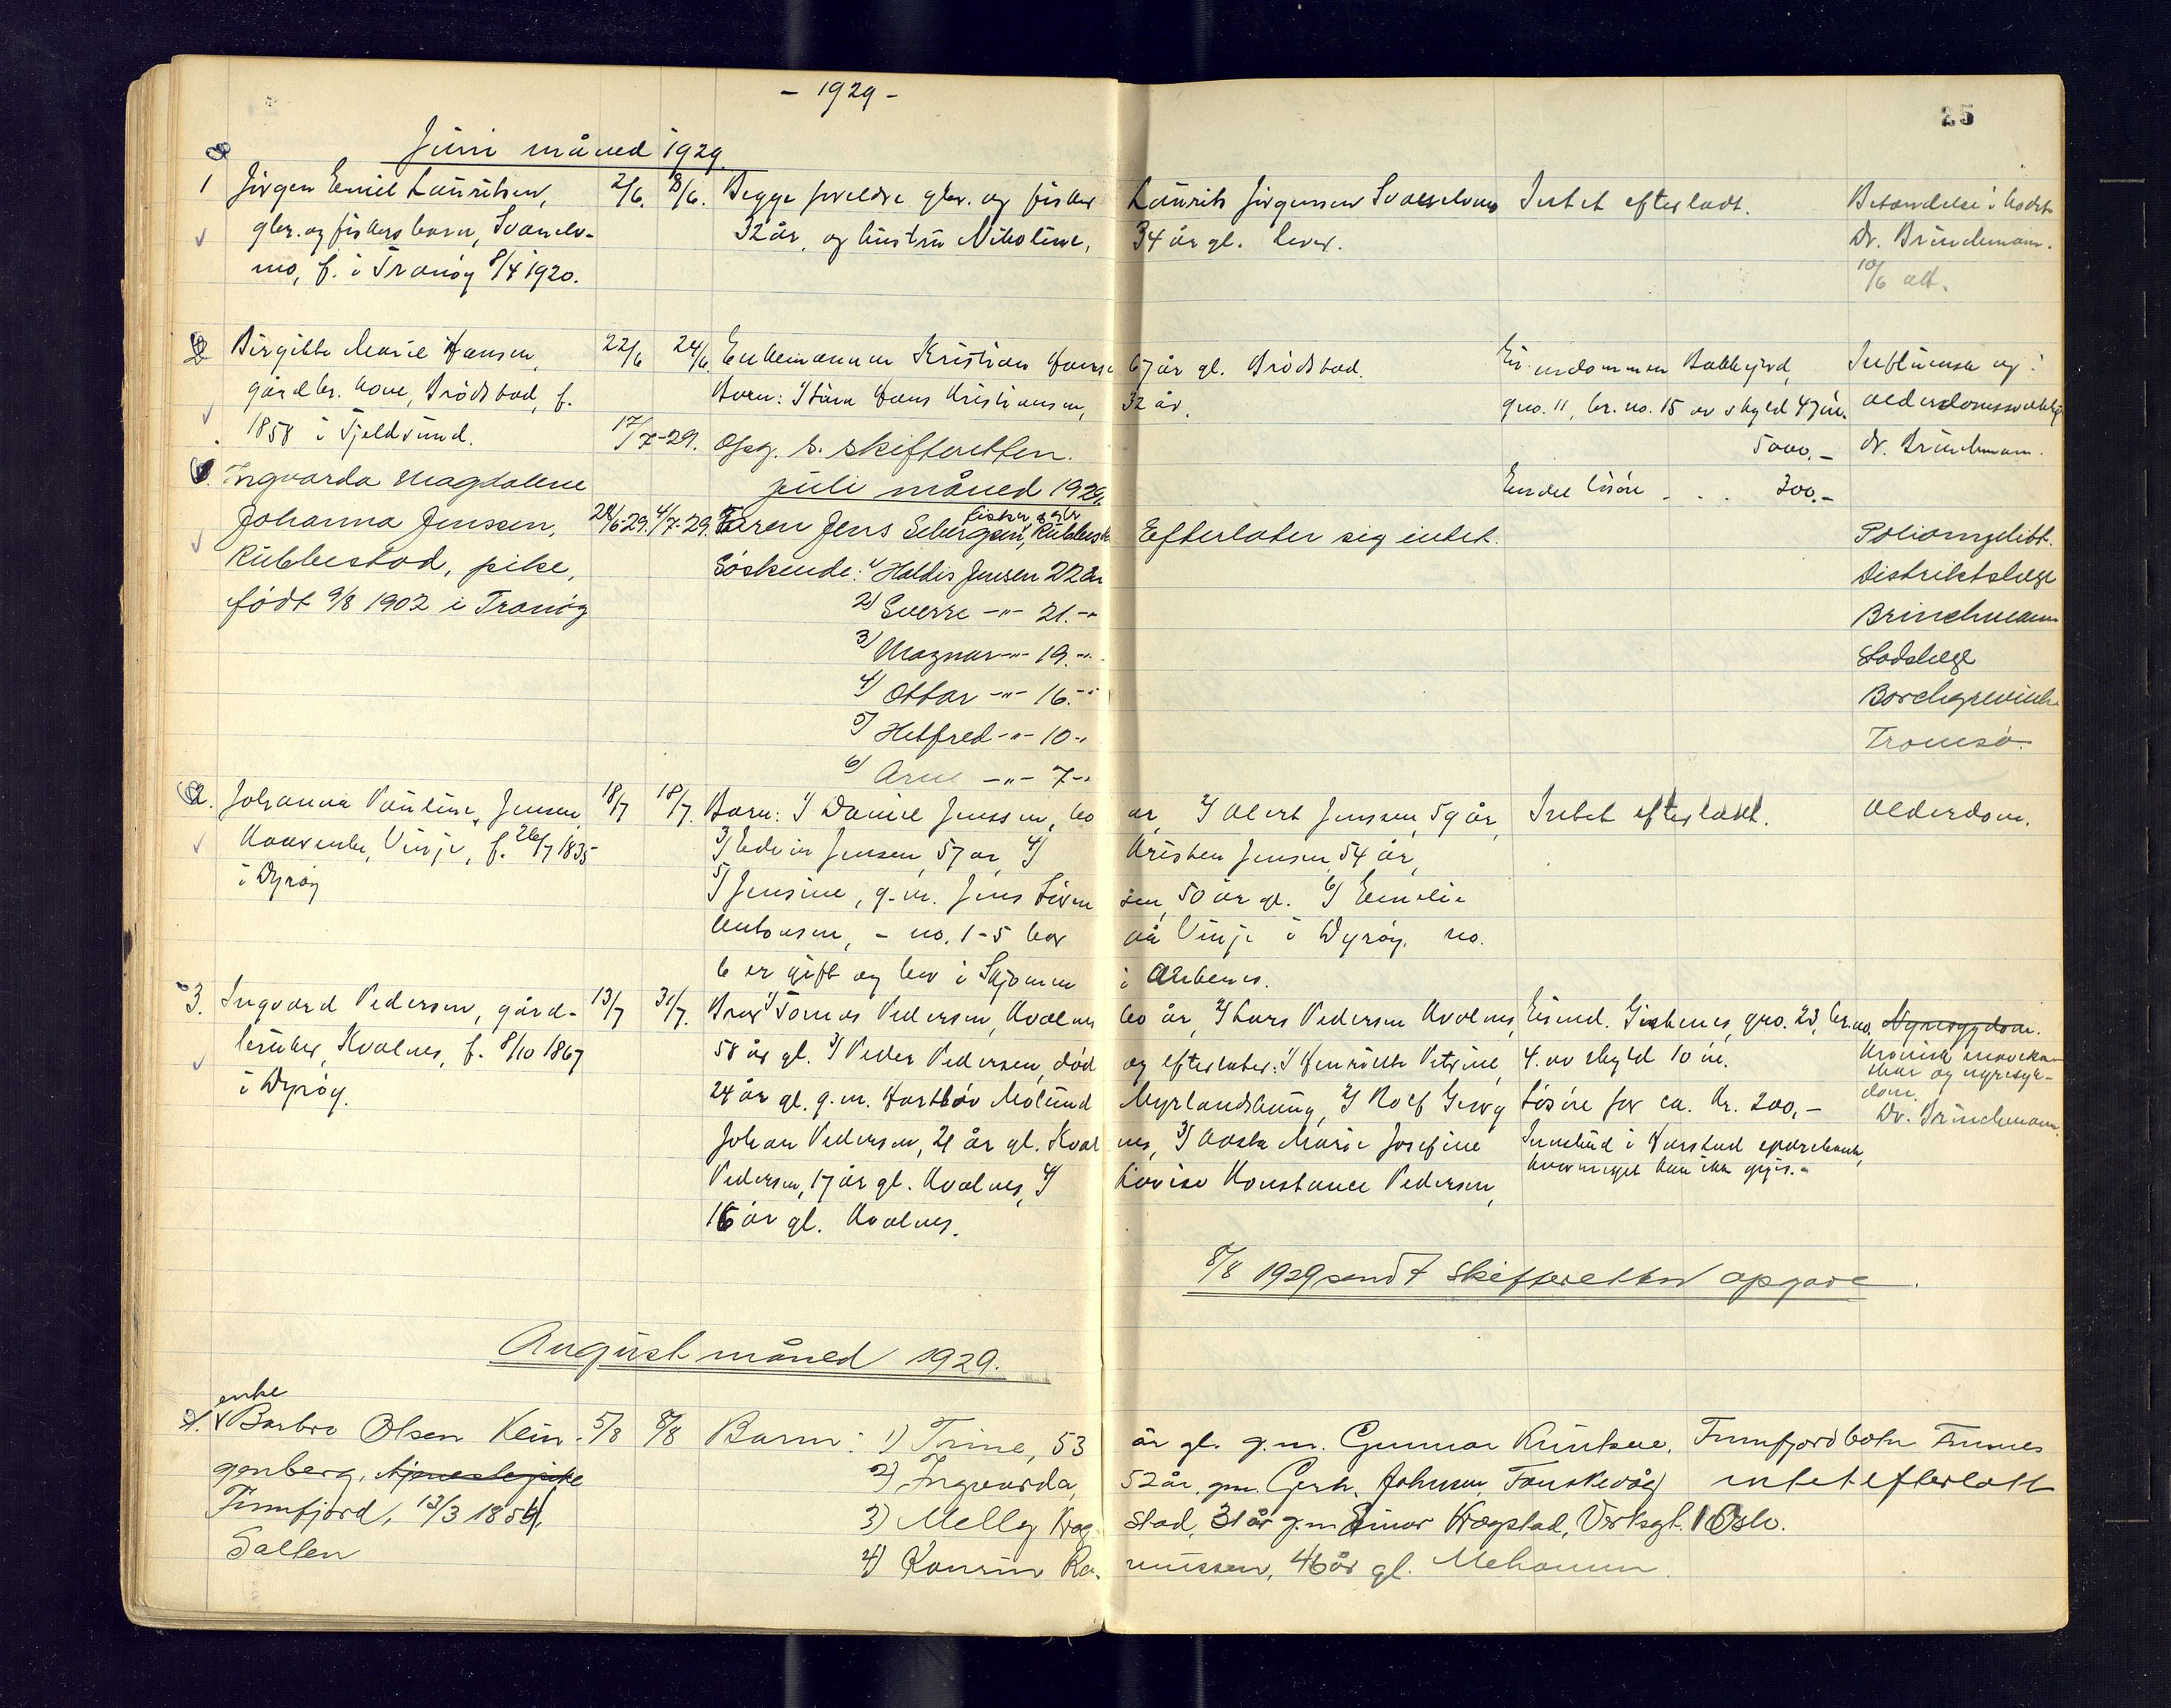 - 1929 -
25
Juni måned 1929.
1 Jørgen Emil Lauritsen, 2/6. 8/6. Begge foreldre gbr. og fisker Laurits Jørgensen Svanelvmo Intet efterladt. Betændelse i
gbr. og fiskers barn, Svanelv- 32 år, og hustru Nikoline, 34 år gl. lever. Dr. Brinchmann.
mo, f. i Tranøy 8/4 1920. 10/6 att.
2 Birgitte Marie Hansen, 22/6 24/6. Enkemannen Kristian Hansen 67 år gl. Brødstad. Eiendommen Bakkejord, Influensa og
gårdbr. kone, Brødstad, f. Barn: 1) Hans Kristiansen, 32 år. gno. 11, br. no. 15 av skyld 47 øre. alderdomssvakhet
1858 i Tjeldsund. 17/7-29. Opg. s. skifteretten. 5000.- dr. Brinchmann.
juli måned 1929.
Endel løsøre - . . 300.-
1. Ingvarda Magdalene
Johanna Jenssen, 24/6-29. 4/7-29. Faren Jens Seberg Jensen, fisker, Rubbestad Efterlater sig intet. Poliomyelitt.
Rubbestad, pike, Søskende: 1) Haldis Jensen 22 år Distriktslæge
født 9/8 1902 i Tranøy 2) Sverre -"- 21.-" Brinchmann
3) Magnar -"- 19.-" Stadslæge
4) Ottar -"- 16.-" Borchgrevink
5) Helfred -"- 10-" Tromsø.
6) Arne -"- 7-"
2. Johanna Pauline Jensen, 18/7 18/7. Barn: 1) Daniel Jenssen, 60 år, 2) Albert Jenssen, 59 år, Intet efterladt. Alderdom.
Vinje, f. 26/7 1835 3) Edvin Jensen, 57 år, 4) Kristen Jensen, 54 år,
i Dyrøy 5) Jensine, g. m. Jens 50 år gl. 6) Emelie
Antonsen, - no. 1-5 bor på Vinje i Dyrøy. no.
6 er gift og bor i Skjomen i Ankenes.
3. Ingvard Pedersen, gård- 13/7 31/7. Bror 1) Tomas Pedersen, Kvalnes 60 år, 2) Lars Pedersen Kvalnes, Eiend. gno. 23, br. no. Nyresygdom.
bruker, Kvalnes, f. 8/10 1867 58 år gl. 3) Peder Pedersen, død og efterlater: 1) Henriette Petrine, 4. av skyld 10 øre. Kronisk
i Dyrøy. 24 år gl. g. m. Moland Myrlandshaug, 2) Rolf Georg Løsøre for ca. kr. 200,- og nyresyk-
dom.
Dr. Brinchmann.
Johan Pedersen, 21 år gl. Kvalnes, 3) Aasta Marie Josefine Innskud i Harstad sparebank,
Pedersen, 17 år gl. Kvalnes, 4) Lovise Konstance Pedersen, hvormeget kan ikke opgis.-
16 år gl. Kvalnes.
8/8 1929 sendt Skifteretten opgave.
August måned 1929.
enke
1. Barbro Olsen Kein- 5/8 8/8 Barn: 1) Trine, 53 år gl. g.m. Gunnar Knutsen. Finnfjordbotn Finnes
genberg, 2) Ingvarda, 52 år, gm. Gerh. Johnsen, Fauskevåg intet efterlatt
Finnfjord, 13/3 1854, 3) Melly Krogstad, 31 år g.m. Einar Krogstad, Oslo.
Salten 4) Kaurin Rasmussen, 46 år gl. Mehamn.